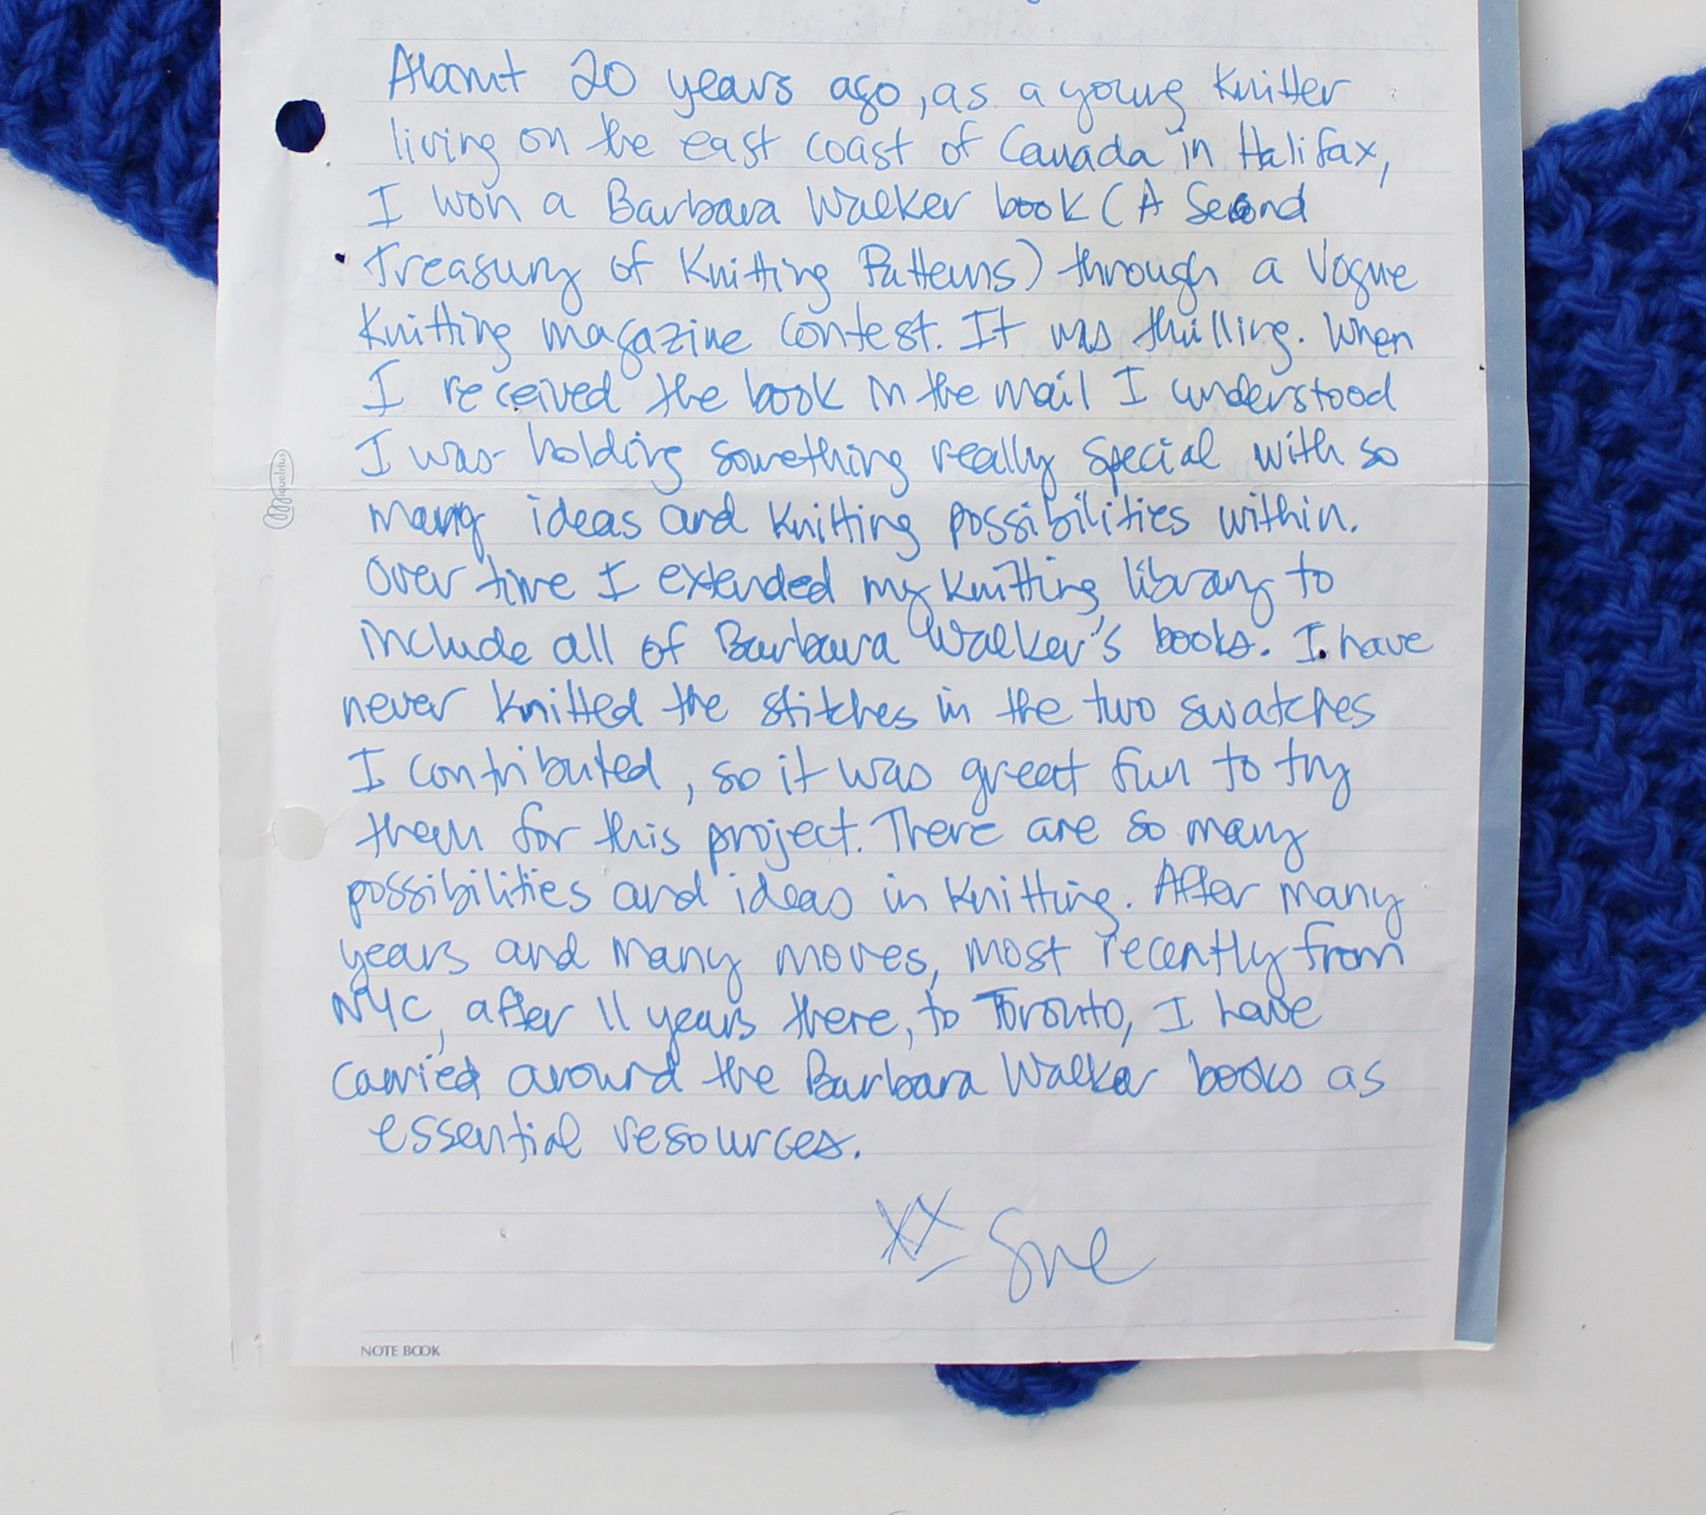 About 20 years ago, as a young knitter
living on the east coast of Canada in Halifax,
I won a Barbara Walker book (A Second
Treasury of Knitting Patterns) through a Vogue
Knitting magazine contest. It was thrilling. When
I received the book in the mail I understood
I was holding something really special with so
many ideas and knitting possibilities within.
Over time I extended my knitting library to
include all of Barbara Walker's books. I have
never knitted the stitches in the two swatches
I contributed, so it was great fun to try
them for this project. There are so many
possibilities and ideas in knitting. After many
years and many moves, most recently from
NYC, after 11 years there, to Toronto, I have
carried around the Barbara Walker books as
essential resources.
XX Sue
NOTE BOOK
Miquelrius